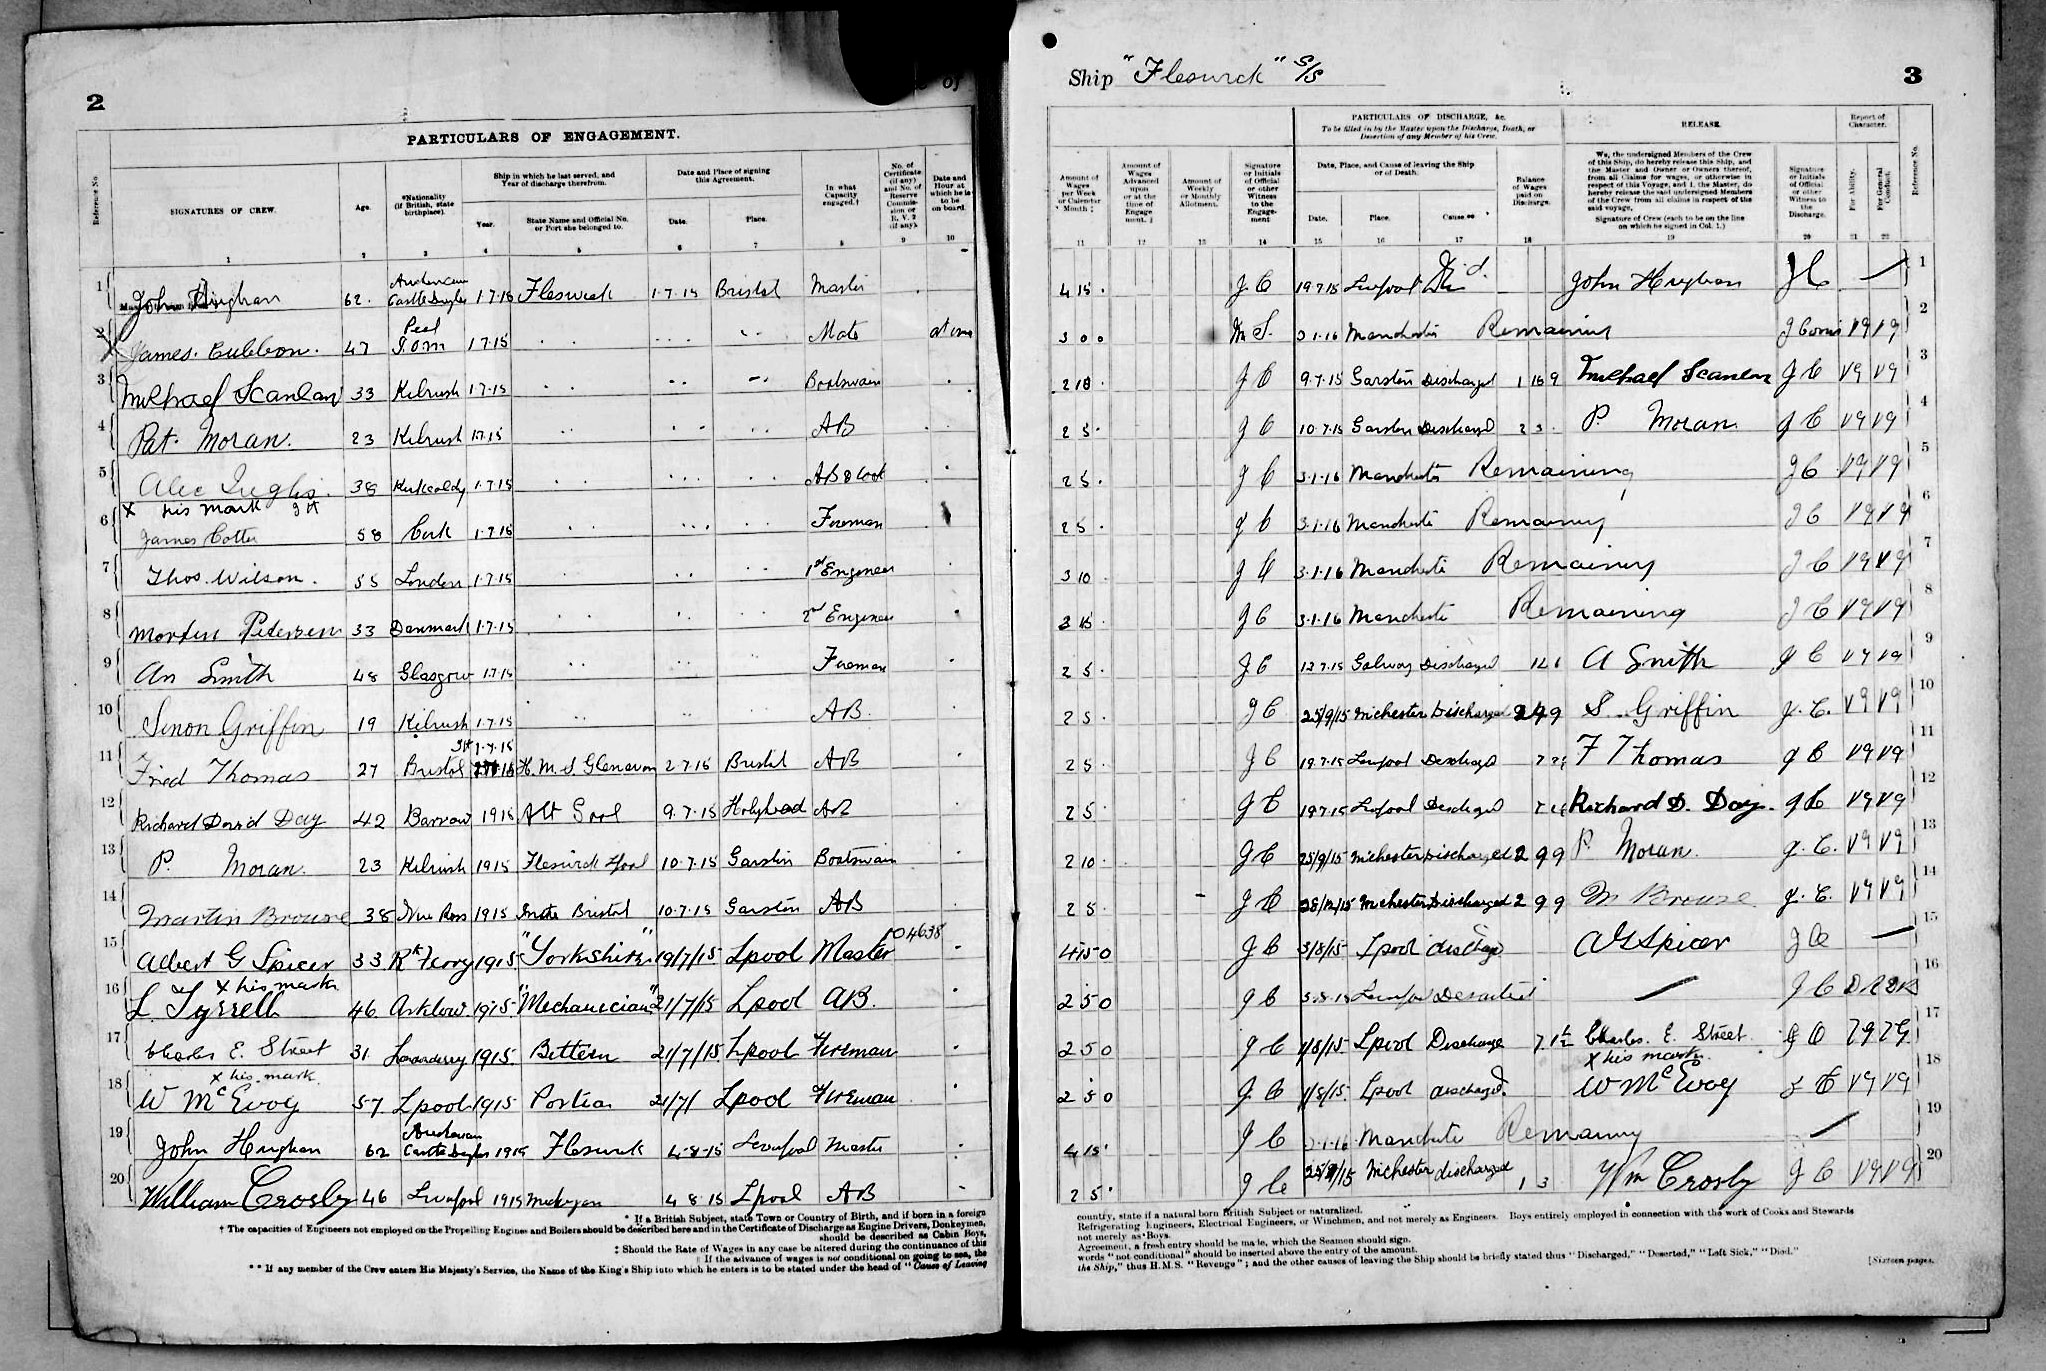 2
PARTICULARS OF ENGAGEMENT.
Reference No.
SIGNATURES OF CREW.
Age.
*Nationality (if British, state birthplace).
Ship in which he last served, and Year of discharge therefrom.
Year.
State Name and Official No. or Port she belonged to.
Date and Place of signing this Agreement.
Date.
Place.
In what Capacity engaged.†
No. of Certificate (if any) and No. of Reserve Commission or R.V. 2 (if any).
Date and Hour at which he is to be on board.
1 2 3 4 5 6 7 8 9 10
1 John Hughan 62. Castle Douglas 1.7.15 Fleswick 1.7.15 Bristol Master
2 X James Cubbon. 47 Peel I.O.M 1.7.15 Mate at once
3 Michael Scanlan 33 Kilrush 1.7.15 Boatswain
4 Pat. Moran. 23 Kilrush 1.7.15 AB
5 Alec Inglis. 38 Kirkcaldy 1.7.15 AB & Cook
6 X his mark James Cotter 58 Cork 1.7.15 Fireman
7 Thos. Wilson. 55 London 1.7.15 1st Engineer
8 Morten Petersen 33 Danmark 1.7.15 2nd Engineer
9 An Smith 48 Glasgow 1.7.15 Fireman
10 Sinon Griffin 19 Kilrush 1.7.15 AB.
11 Fred Thomas 27 Bristol H.M.S Glenavon 2.7.15 Bristol AB
12 Richard David Day 42 Barrow 1915 Alt 9.7.15 Holyhead AB
13 P. Moran. 23 Kilrush 1915 Fleswick Lpool 10.7.15 Garston Boatswain
14 Martin Browne 38 New Ross 1915 Bristol 10.7.15 Garston AB
15 Albert G Spicer 33 Rk Ferry 1915 "Yorkshire" 19/7/15 Lpool Master 04638
16 X his mark L. Tyrrell 46 Arklow 1915. "Mechanician" 21/7/15 Lpool AB.
17 Charles E. Street 31 Londonderry 1915. Bittern 21/7/15 Lpool Fireman
18 X his mark W McEvoy 57 Lpool 1915 Portia 21/7/ Lpool Fireman
19 John Hughan 62 Castle Douglas 1915 Fleswick 4-8-15 Liverpool Master
20 William Crosby 46 Liverpool 1915 Michigan 4 8.15 Lpool AB
* If a British Subject, state Town or Country of Birth, and if born in a foreign
† The capacities of Engineers not employed on the Propelling Engines and Boilers should be described here and in the Certificate of Discharge as Engine Drivers, Donkeymen,
should be described as Cabin Boys,
‡ Should the Rate of Wages in any case be altered during the continuance of this
If the advance of wages is not conditional on going to sea, the
** If any member of the Crew enters His Majesty's Service, the Name of the King's Ship into which he enters is to be stated under the head of "Cause of Leaving
Ship "Fleswick" S/S
3
Amount of Wages per Week or Calendar Month ‡
Amount of Wages Advanced upon or at the time of Engagement. ‡
Amount of Weekly or Monthly Allotment.
Signature or Initials of Official or other Witness to the Engagement
PARTICULARS OF DISCHARGE, &c.
To be filled in by the Master upon the Discharge, Death, or Desertion of any Member of his Crew.
Date, Place, and Cause of leaving the Ship or of Death.
Date.
Place.
Cause.**
Balance of Wages paid on Discharge.
RELEASE.
We, the undersigned Members of the Crew of this Ship, do hereby release this Ship, and the Master and Owner or Owners thereof, from all Claims for wages, or otherwise in respect of this Voyage, and I, the Master, do hereby release the said undersigned Members of the Crew from all claims in respect of the said voyage.
Signature of Crew (each to be on the line on which he signed in Col. 1.)
Signature or Initials of Official or other Witness to the Discharge.
Report of Character.
For Ability.
For General Conduct.
Reference No.
11 12 13 14 15 16 17 18 19 20 21 22
4 15. J C 19.7.15 Liverpool John Hughan J C — 1
3 0 0 3.1.16 Manchester Remaining VG VG 2
2 10. J C 9.7.15 Garston Discharged 1 16 9 Michael Scanlan J C VG VG 3
2 5. J C 10.7.15 Garston Discharged 2 3. P. Moran J C VG VG 4
2 5. J C 3.1.16 Manchester Remaining J C VG VG 5
2 5. J C 3.1.16 Manchester Remaining J C VG VG 6
3 10. J C 3.1.16 Manchester Remaining J C VG VG 7
J C 3.1.16 Manchester Remaining J C VG VG 8
2 5. J C 12.7.15 Galway Discharged A Smith J C VG VG 9
2 5. J C 25/9/15 Mchester Discharged S. Griffin J. C. VG VG 10
2 5. J C 19.7.15 Liverpool Discharged F Thomas J C VG VG 11
2 5. J C 19.7.15 Liverpool Discharged Richard D. Day. J C VG VG 12
2 10. J C 25/9/15 Mchester Discharged 2 9 9 P. Moran. J. C. VG VG 13
2 5. J C 28/12/15 Mchester Discharged 2 9 9 M Browne J. C. VG VG 14
J C 3/8/15 Lpool discharge AG Spicer J C — 15
2 5 0 J C Liverpool Deserted — J C 16
2 5 0 J C 1/8/15 Lpool Discharge Charles. E. Street. J C 17
2 5 0 J. C 1/8/15. Lpool discharged. X his mark W McEvoy J C VG VG 18
4 15. J C 3.1.16 Manchester Remaining — 19
2 5. J C Mchester discharged 1 3 Wm Crosby J C VG VG 20
country, state if a natural born British Subject or naturalized.
Refrigerating Engineers, Electrical Engineers, or Winchmen, and not merely as Engineers. Boys entirely employed in connection with the work of Cooks and Stewards
not merely as Boys.
Agreement, a fresh entry should be made, which the Seamen should sign.
words "not conditional" should be inserted above the entry of the amount.
the Ship," thus H.M.S. "Revenge"; and the other causes of leaving the Ship should be briefly stated thus "Discharged," "Deserted," "Left Sick," "Died."
[Sixteen pages.